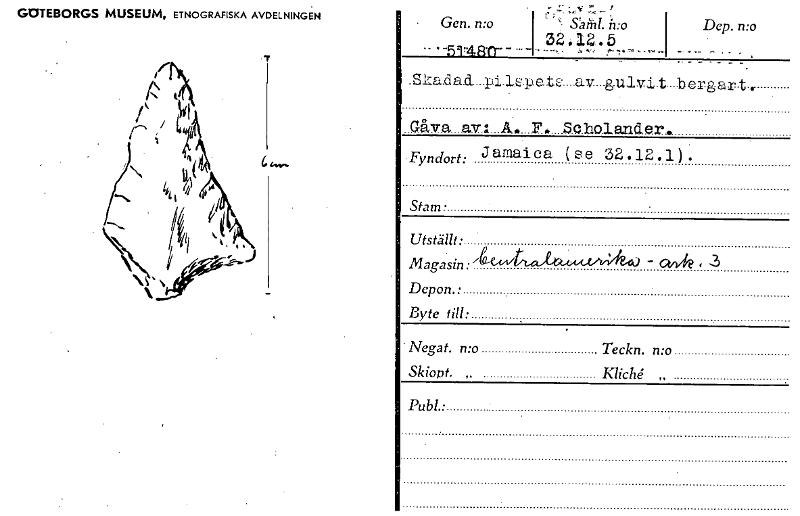 GÖTEBORGS MUSEUM, ETNOGRAFISKA AVDELNINGEN
6 cm
Gen. n:o Saml. n:o Dep. n:o
51480 32.12.5
Skadad pilspets av gulvit bergart.
Gåva av: A. F. Scholander.
Fyndort: Jamaica (se 32.12.1).
Stam:
Utställt:
Magasin: Centralamerika - ark. 3
Depon.:
Byte till:
Negat. n:o Teckn. n:o
Skiopt. „ Kliché „
Publ.: